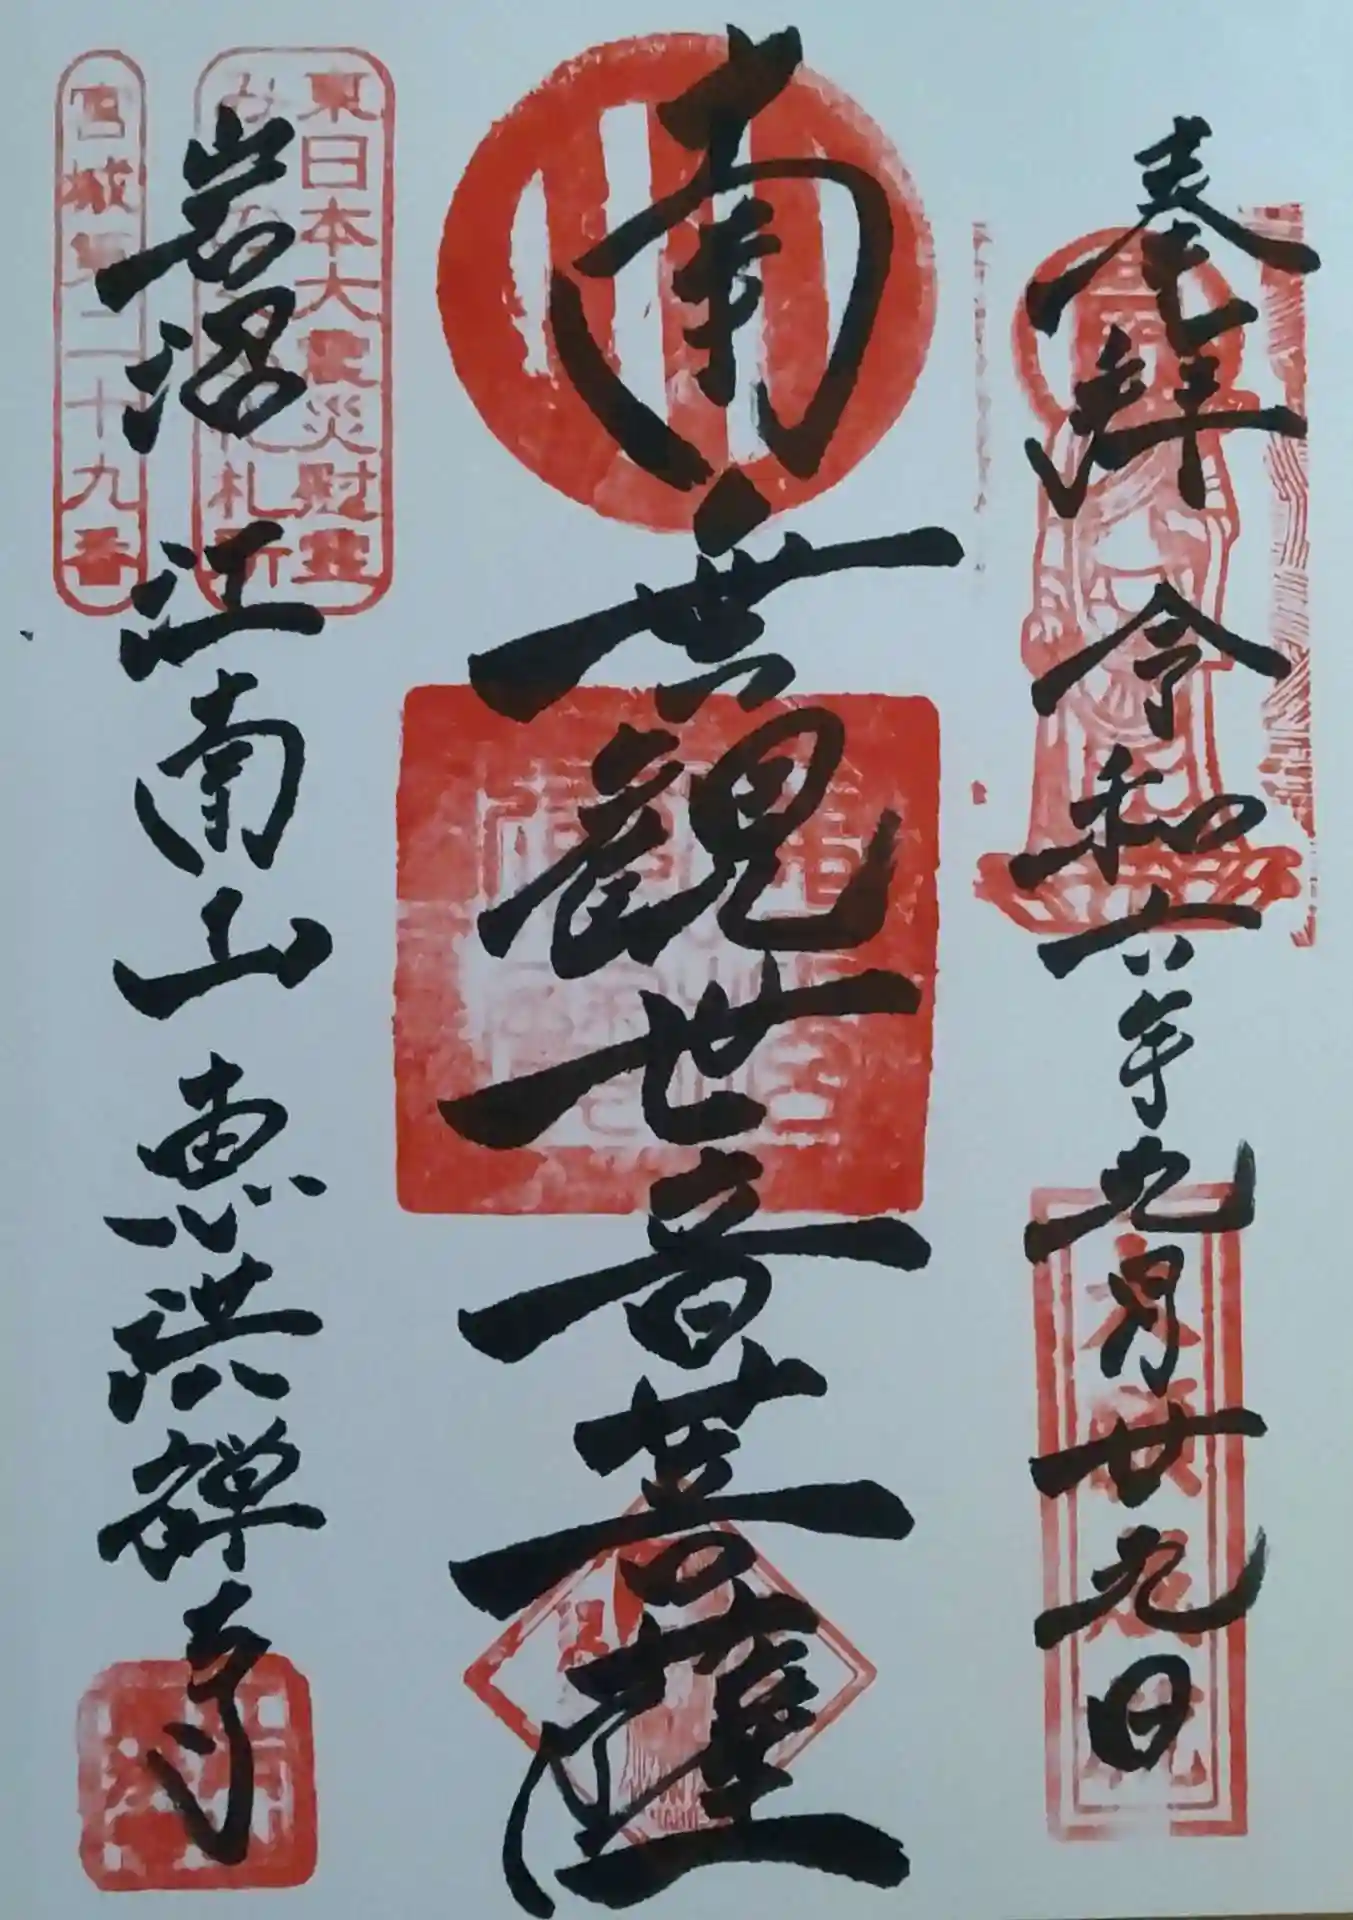 奉拝 令和六年九月廿九日
南無観世音菩薩
東日本大震災慰霊
札所
宮城第二十九番
岩沼 江南山 恵洪禅寺